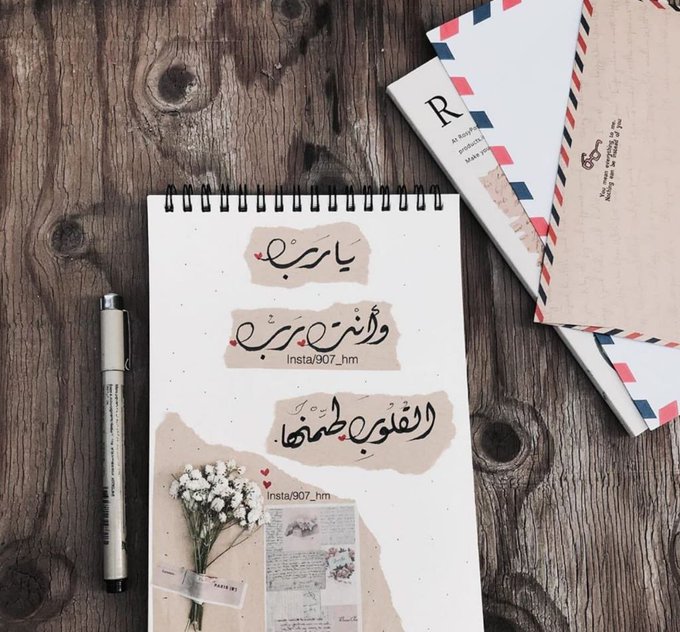 يَا رَبْ
وأنْت رَبْ
Insta/907_hm
القُلُوبِ طَمِّنْهَا.
Insta/907_hm
R
At RosyPo
products.
Make you
You mean everything to me.
Nothing can be instead of you
PARIS